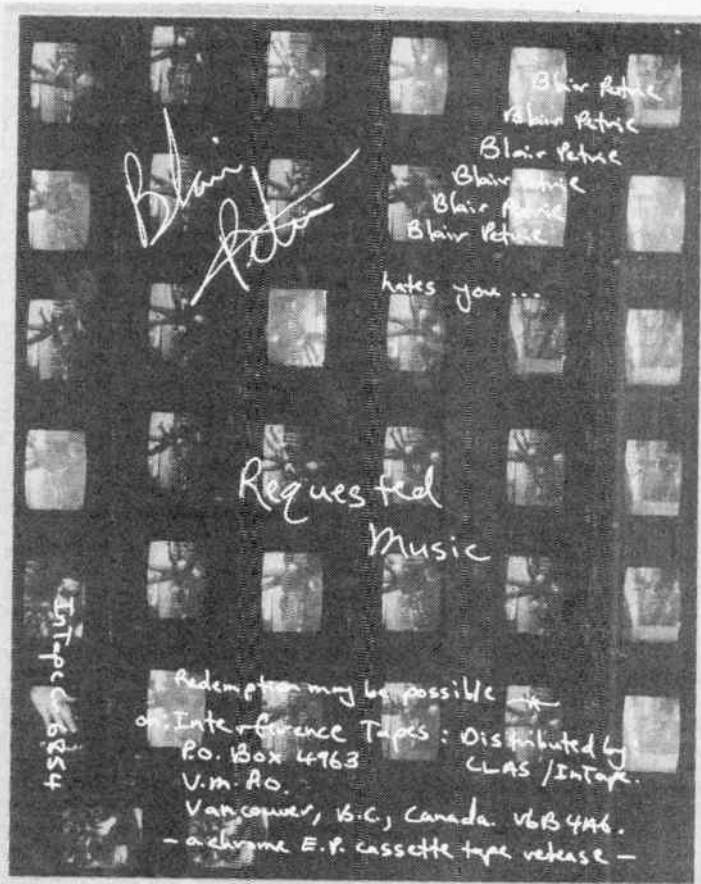 Blair Petrie
Blair Petrie
Blair Petrie
Blair Petrie
Blair Petrie
Blair Petrie
Blair Petrie
hates you...
Requested
Music
Redemption may be possible
on: Interference Tapes: Distributed by:
P.O. Box 4963
CLAS/InTape.
V.M.P.O.
Vancouver, B.C., Canada. V6B 4A6.
- a chrome E.P. cassette tape release -
InTape C 6854